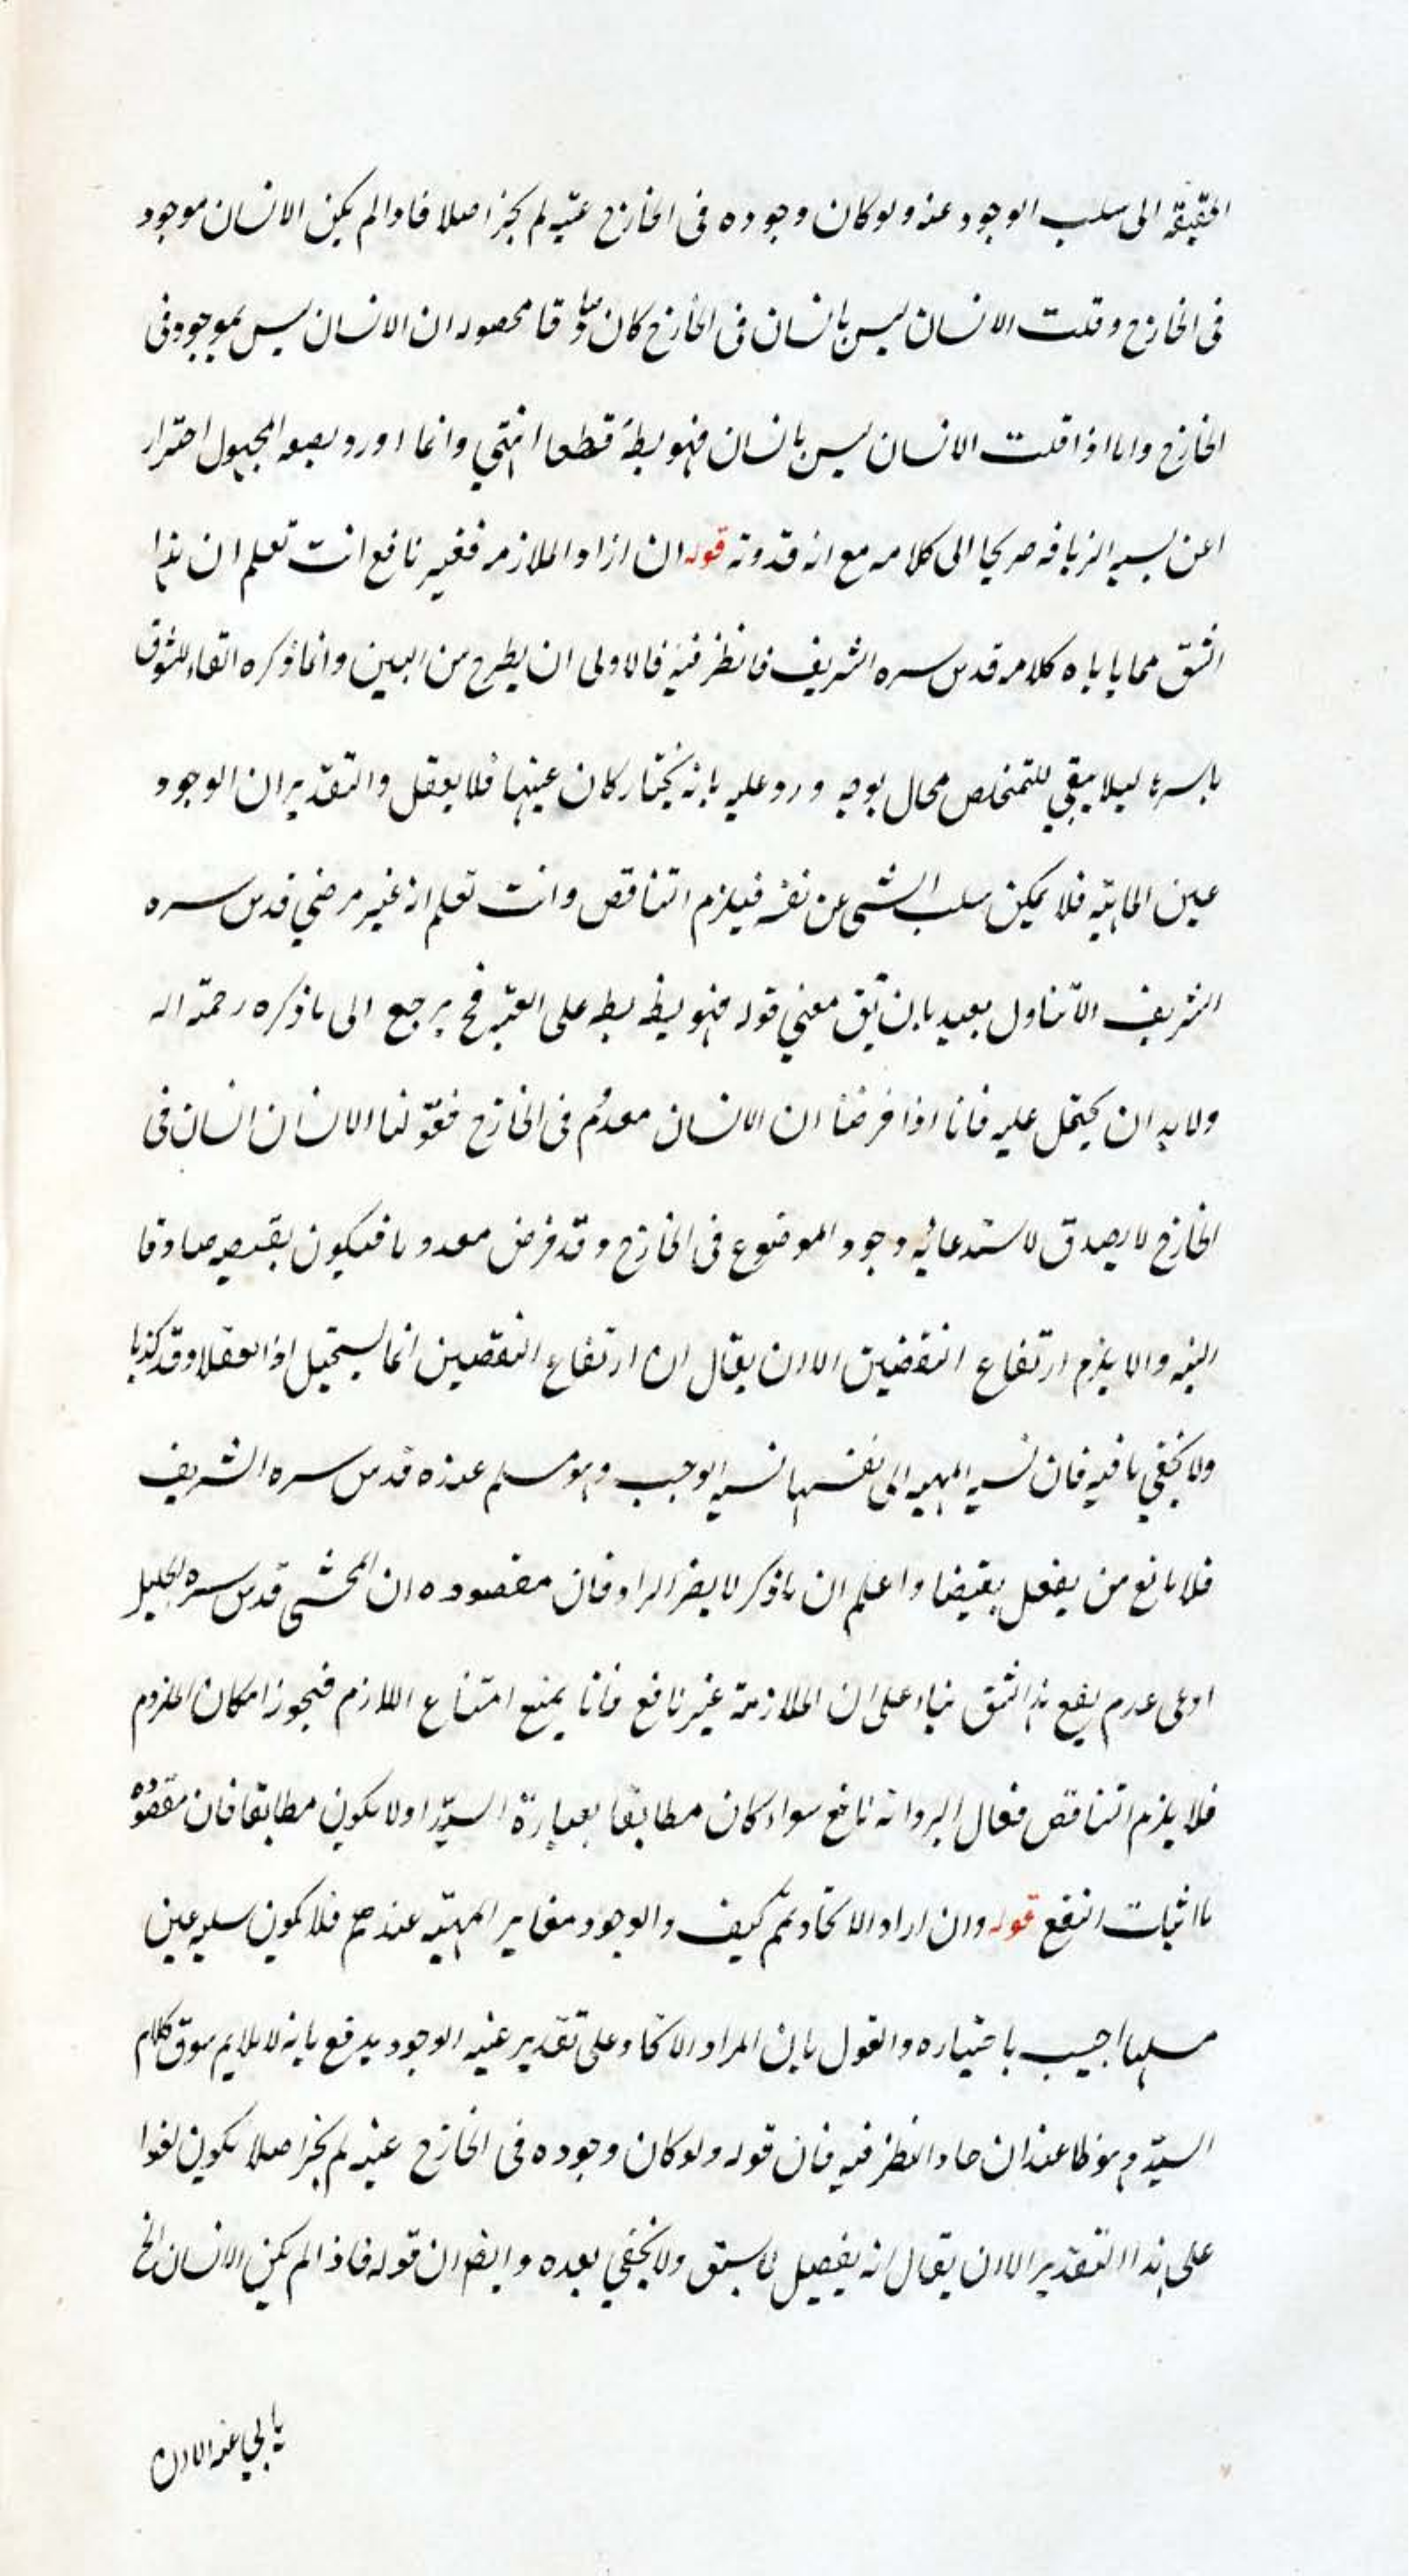 الحقيقة الى سلب الوجود عنه ولو كان وجوده فى الخارج عينه لم يجز اصلا فاذا لم يكن الانسان موجود
فى الخارج وقلت الانسان ليس بانسان فى الخارج كان صادقا محصوله ان الانسان ليس بموجود فى
الخارج واما اذا قلت الانسان ليس بانسان فهو بط قطعا انتهى وانما اورد بصيغة المجهول احترازا
عن نسبة الزيافة صريحا الى كلامه مع انه قدوته قوله ان اراد الملازمة فغير نافع انت تعلم ان هذا
الشق مما ياباه كلامه قدس سره الشريف فانظر فيه فالاولى ان يطرح من البين وانما ذكره للشقوق
باسرها ليلا يبقى للتمخلص محال بوجه ورد عليه بانه يختار كان عينها فلا يعقل والتقدير ان الوجود
عين الماهية فلا يمكن سلب الشى عن نفسه فيلزم التناقض وانت تعلم انه غير مرضي قدس سره
الشريف الا بتناول بعيد بان يق معنى قوله فهو بط بط على العينية فح يرجع الى ما ذكره رحمة اله
ولا بد ان يحمل عليه فانا اذا فرضنا ان الانسان معدوم فى الخارج فقولنا الانسان انسان فى
الخارج لا يصدق لاستدعائه وجود الموضوع فى الخارج وقد فرض معدوما فيكون نقيضه صادقا
البتة والا يلزم ارتفاع النقيضين الا ان يقال ان ارتفاع النقيضين انما يستحيل اذا تعقلا وقد كذبا
ولا يخفى ما فيه فان نسبة المهية الى نفسها نسبة الوجب وهو مسلم عنده قدس سره الشريف
فلا مانع من يفعل نقيضا واعلم ان ما ذكر لا يضر المراد فان مقصوده ان المحشى قدس سره الجليل
ادعى عدم نفع هذا الشق بناء على ان الملازمة غير نافع فانا يمنع امتناع اللازم فيجوز امكان الملزوم
فلا يلزم التناقض فقال البر وانه نافع سواء كان مطابقا بعبارة السيد او لا يكون مطابقا فان مقصوده
ما اثبات النفع قوله وان اراد الاتحاد ثم كيف والوجود مغاير المهية عندهم فلا يكون سلبه عين
سلبها اجيب باختياره والقول بان المراد الاتحاد على تقدير عينية الوجود يدفع بانه لا يلايم سوق كلام
السيد وهو ظا عند ان حاد النظر فيه فان قوله ولو كان وجوده فى الخارج عينه لم يجز اصلا يكون لغوا
على هذا التقدير الا ان يقال انه تفصيل لما سبق ولا يخفى بعده وايضا ان قوله فاذا لم يكن الانسان الخ
يابى عنه الا ان